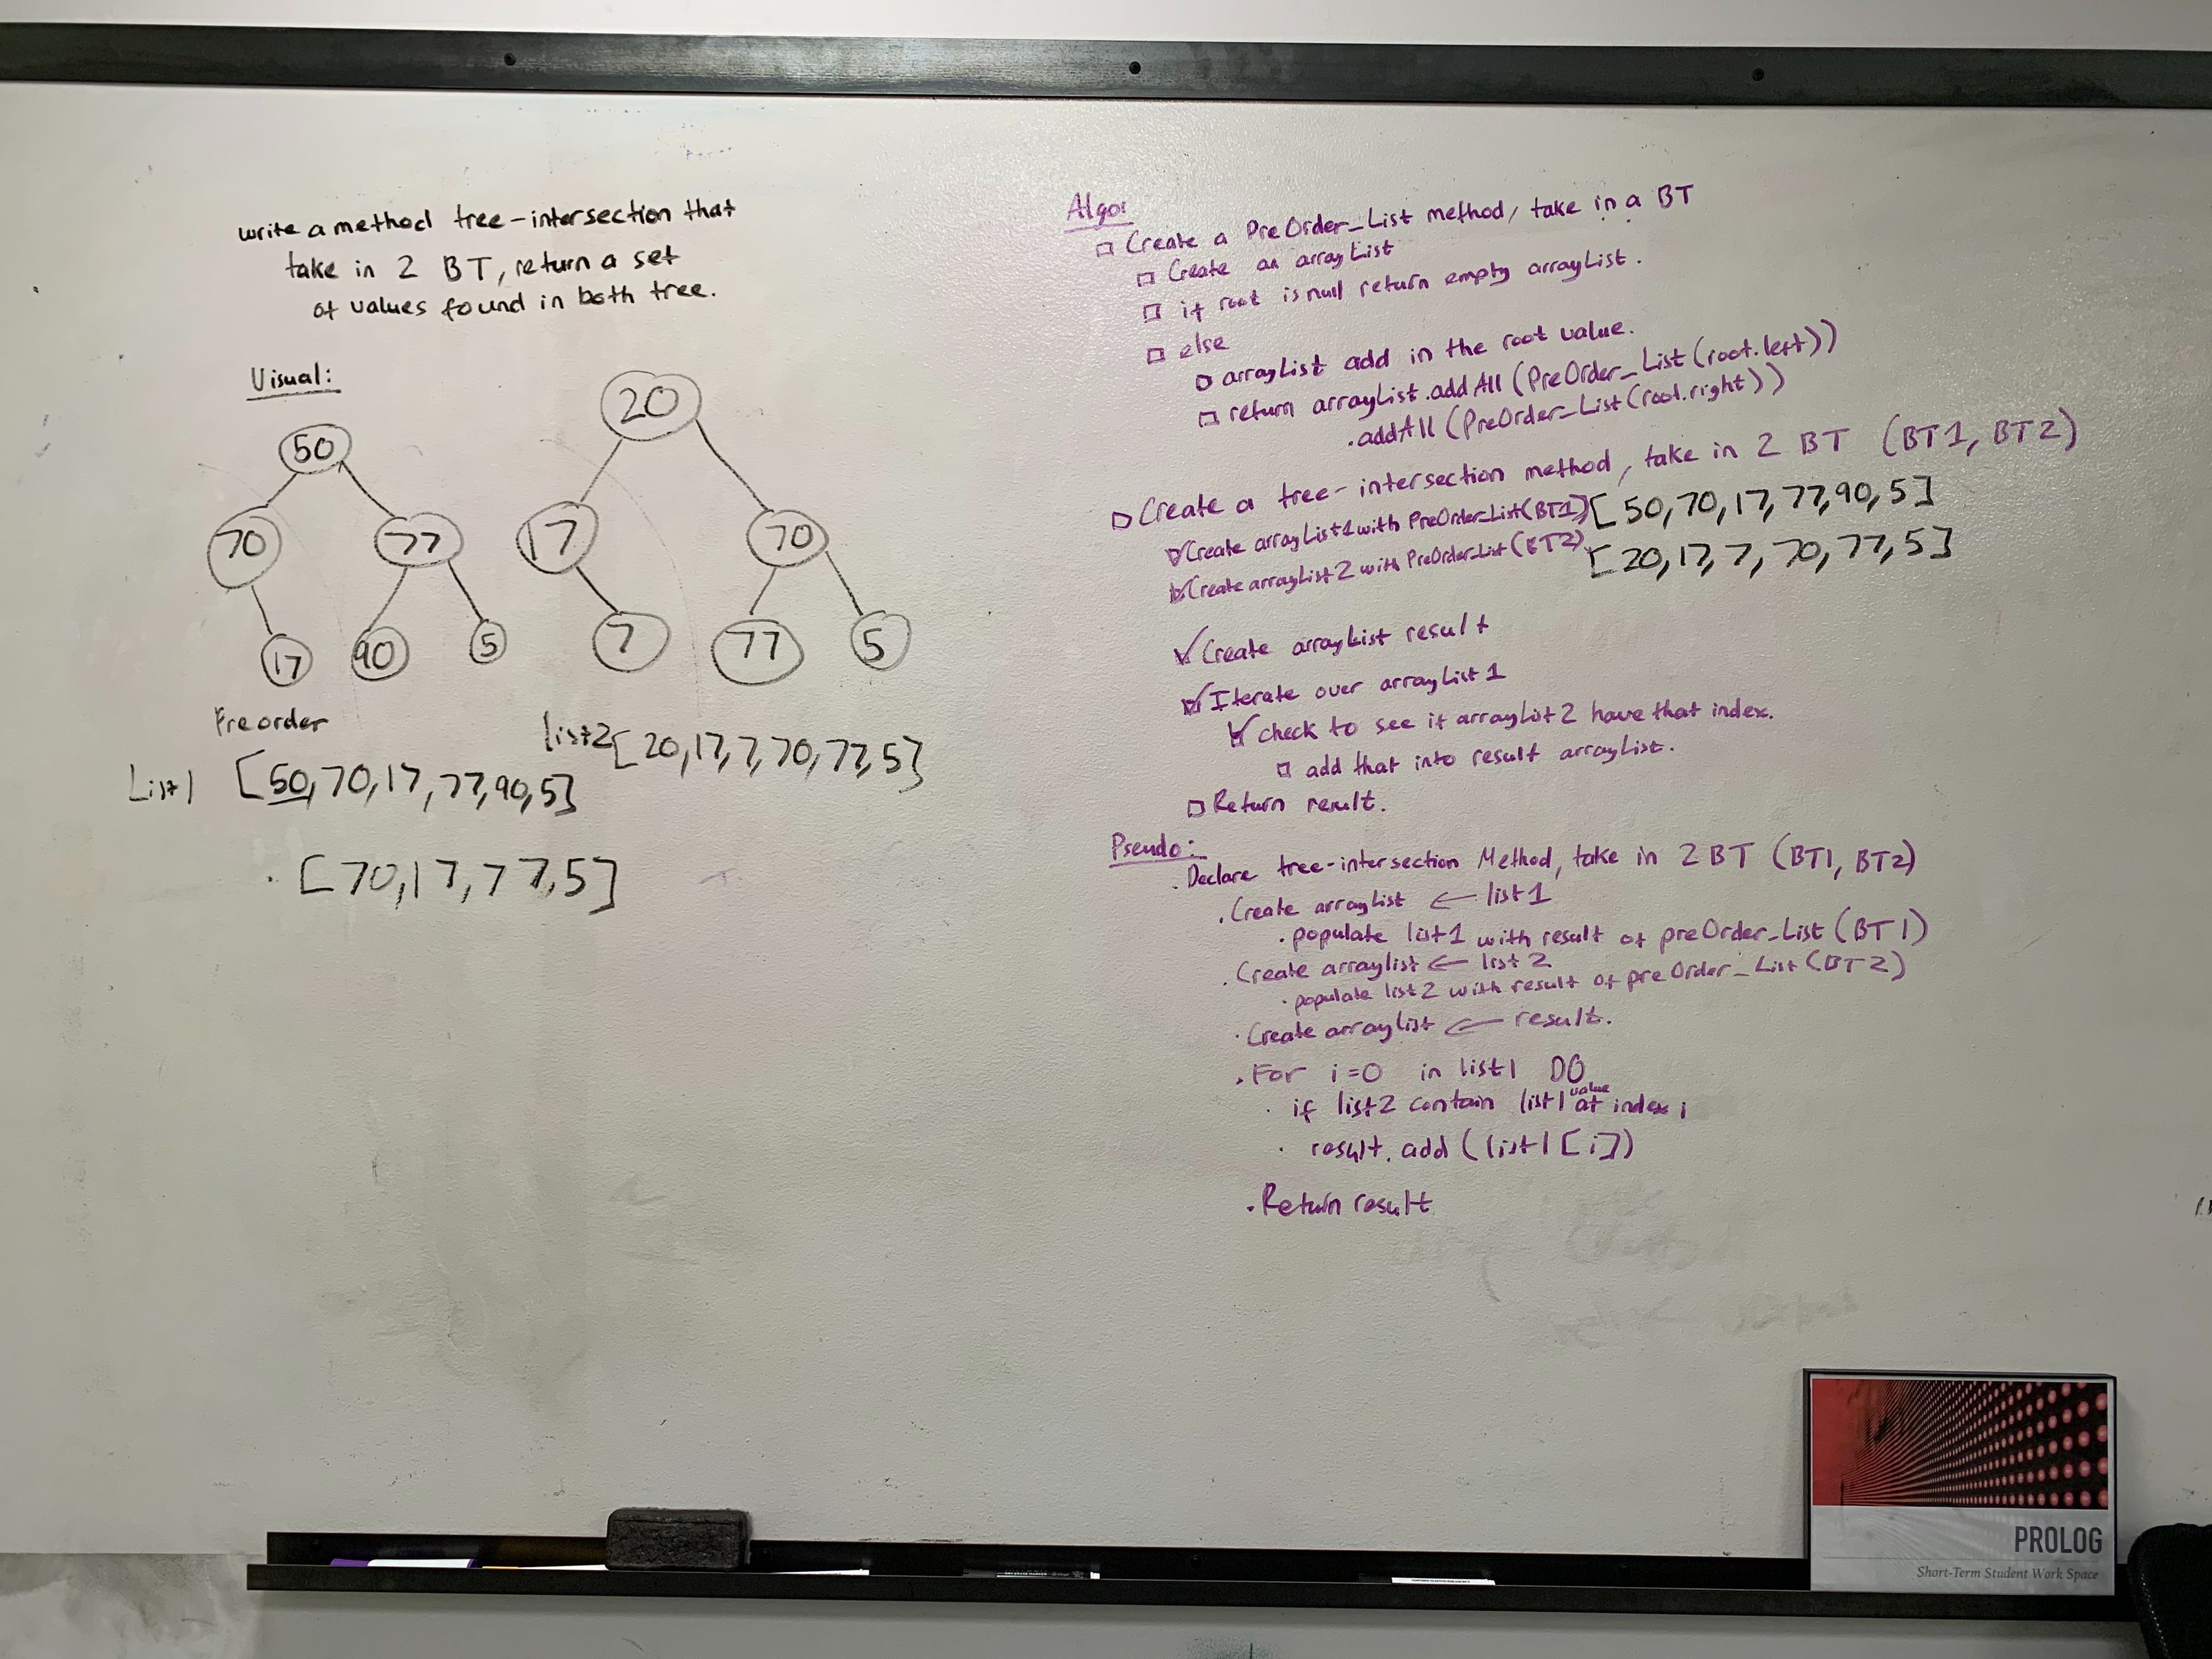 write a method tree-intersection that
take in 2 BT, return a set
of values found in both tree.
Visual:
50
70
77
17
90
5
20
17
70
7
77
5
Preorder
List1 [50,70,17,77,90,5]
list2 [20,17,7,70,77,5]
[70,17,77,5]
Algo:
Create a PreOrder_List method, take in a BT
Create an arrayList
if root is null return empty arrayList.
else
arrayList add in the root value.
return arrayList.addAll (PreOrder_List (root.left))
.addAll (PreOrder_List (root.right))
Create a tree-intersection method, take in 2 BT (BT1, BT2)
Create arrayList1 with PreOrder_List(BT1) [50,70,17,77,90,5]
Create arrayList2 with PreOrder_List(BT2) [20,17,7,70,77,5]
Create arrayList result
Iterate over arrayList1
check to see if arrayList2 have that index.
add that into result arrayList.
Return result.
Pseudo:
Declare tree-intersection Method, take in 2 BT (BT1, BT2)
. Create arraylist ← list1
. populate list1 with result of preOrder_List (BT1)
. Create arraylist ← list2
. populate list2 with result of preOrder_List (BT2)
. Create arraylist ← result.
. For i=0 in list1 DO
. if list2 contain list1 value at index i
. result.add (list1[i])
. Return result
PROLOG
Short-Term Student Work Space